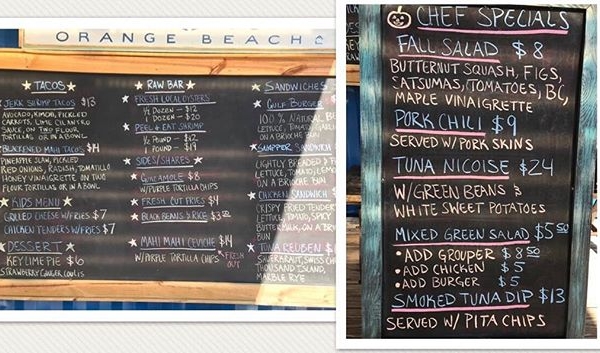 ORANGE BEACH
TACOS
JERK SHRIMP TACOS $13
AVOCADO, KIMCHI, PICKLED
CARROTS, LIME CILANTRO
SAUCE, ON TWO FLOUR
TORTILLAS OR IN A BOWL
BLACKENED MAHI TACOS $14
PINEAPPLE SLAW, PICKLED
RED ONIONS, RADISH, TOMATILLO
HONEY VINAIGRETTE ON TWO
FLOUR TORTILLAS OR IN A BOWL
KIDS MENU
GRILLED CHEESE W/FRIES $7
CHICKEN TENDERS W/FRIES $7
DESSERT
KEY LIME PIE $6
STRAWBERRY COULIS
RAW BAR
FRESH LOCAL OYSTERS
½ DOZEN - $12
1 DOZEN - $20
PEEL & EAT SHRIMP
½ POUND - $12
1 POUND - $19
SIDES/SHARES
GUACAMOLE $8
W/PURPLE TORTILLA CHIPS
FRESH CUT FRIES $4
BLACK BEANS & RICE $3.50
MAHI MAHI CEVICHE $14
W/PURPLE TORTILLA CHIPS
FRESH OUT
SANDWICHES
GULF BURGER
100% NATURAL
LETTUCE, TOMATO,
ON A BRIOCHE BUN
SNAPPER SANDWICH
LIGHTLY BREADED
LETTUCE, TOMATO,
ON A BRIOCHE BUN
CHICKEN SANDWICH
CRISPY FRIED TENDERS
LETTUCE, TOMATO, SPICY
BUTTERMILK, ON A
BUN
TUNA REUBEN
SAUERKRAUT, SWISS
THOUSAND ISLAND,
MARBLE RYE
CHEF SPECIALS
FALL SALAD $8
BUTTERNUT SQUASH, FIGS,
SATSUMAS, TOMATOES, BC,
MAPLE VINAIGRETTE
PORK CHILI $9
SERVED W/ PORK SKINS
TUNA NICOISE $24
W/GREEN BEANS &
WHITE SWEET POTATOES
MIXED GREEN SALAD $5.50
• ADD GROUPER $8.50
• ADD CHICKEN $5
• ADD BURGER $5
SMOKED TUNA DIP $13
SERVED W/ PITA CHIPS